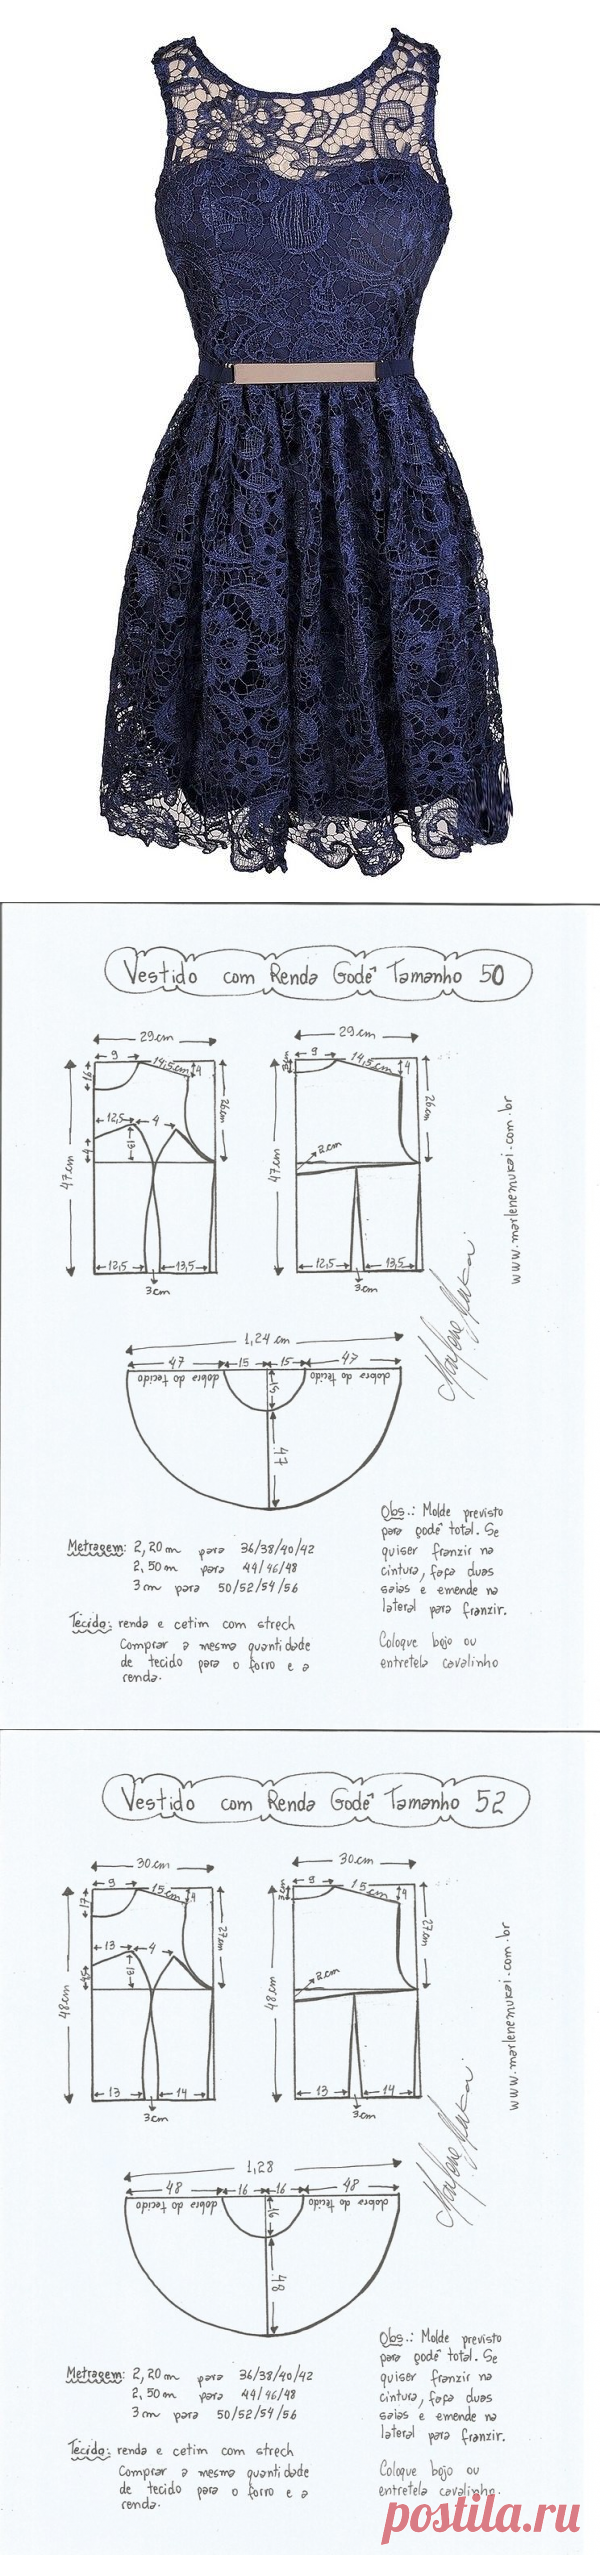 Vestido com Renda Godê Tamanho 50
29cm
9
14,5cm
4
16
26cm
12,5
4
13
4
47cm
12,5
13,5
3cm
29cm
9
14,5cm
4
3cm
26cm
2cm
47cm
12,5
13,5
3cm
www.marlenemukai.com.br
Marlene Mukai
1,24 cm
47
15
15
47
dobra do tecido
dobra do tecido
15
47
Metragem: 2,20m para 36/38/40/42
2,50m para 44/46/48
3 cm para 50/52/54/56
Tecido: renda e cetim com strech
Comprar a mesma quantidade
de tecido para o forro e a
renda.
Obs.: Molde previsto
para godê total. Se
quiser franzir na
cintura, faça duas
saias e emende na
lateral para franzir.
Coloque bojo ou
entretela cavalinho
Vestido com Renda Godê Tamanho 52
30cm
9
15cm
4
17
27cm
13
4
13
4,5
48cm
13
14
3cm
30cm
9
15cm
4
3cm
27cm
2cm
48cm
13
14
3cm
www.marlenemukai.com.br
Marlene Mukai
1,28
48
16
16
48
dobra do tecido
dobra do tecido
16
48
Metragem: 2,20m para 36/38/40/42
2,50m para 44/46/48
3 cm para 50/52/54/56
Tecido: renda e cetim com strech
Comprar a mesma quantidade
de tecido para o forro e a
renda.
Obs.: Molde previsto
para godê total. Se
quiser franzir na
cintura, faça duas
saias e emende na
lateral para franzir.
Coloque bojo ou
entretela cavalinho.
postila.ru